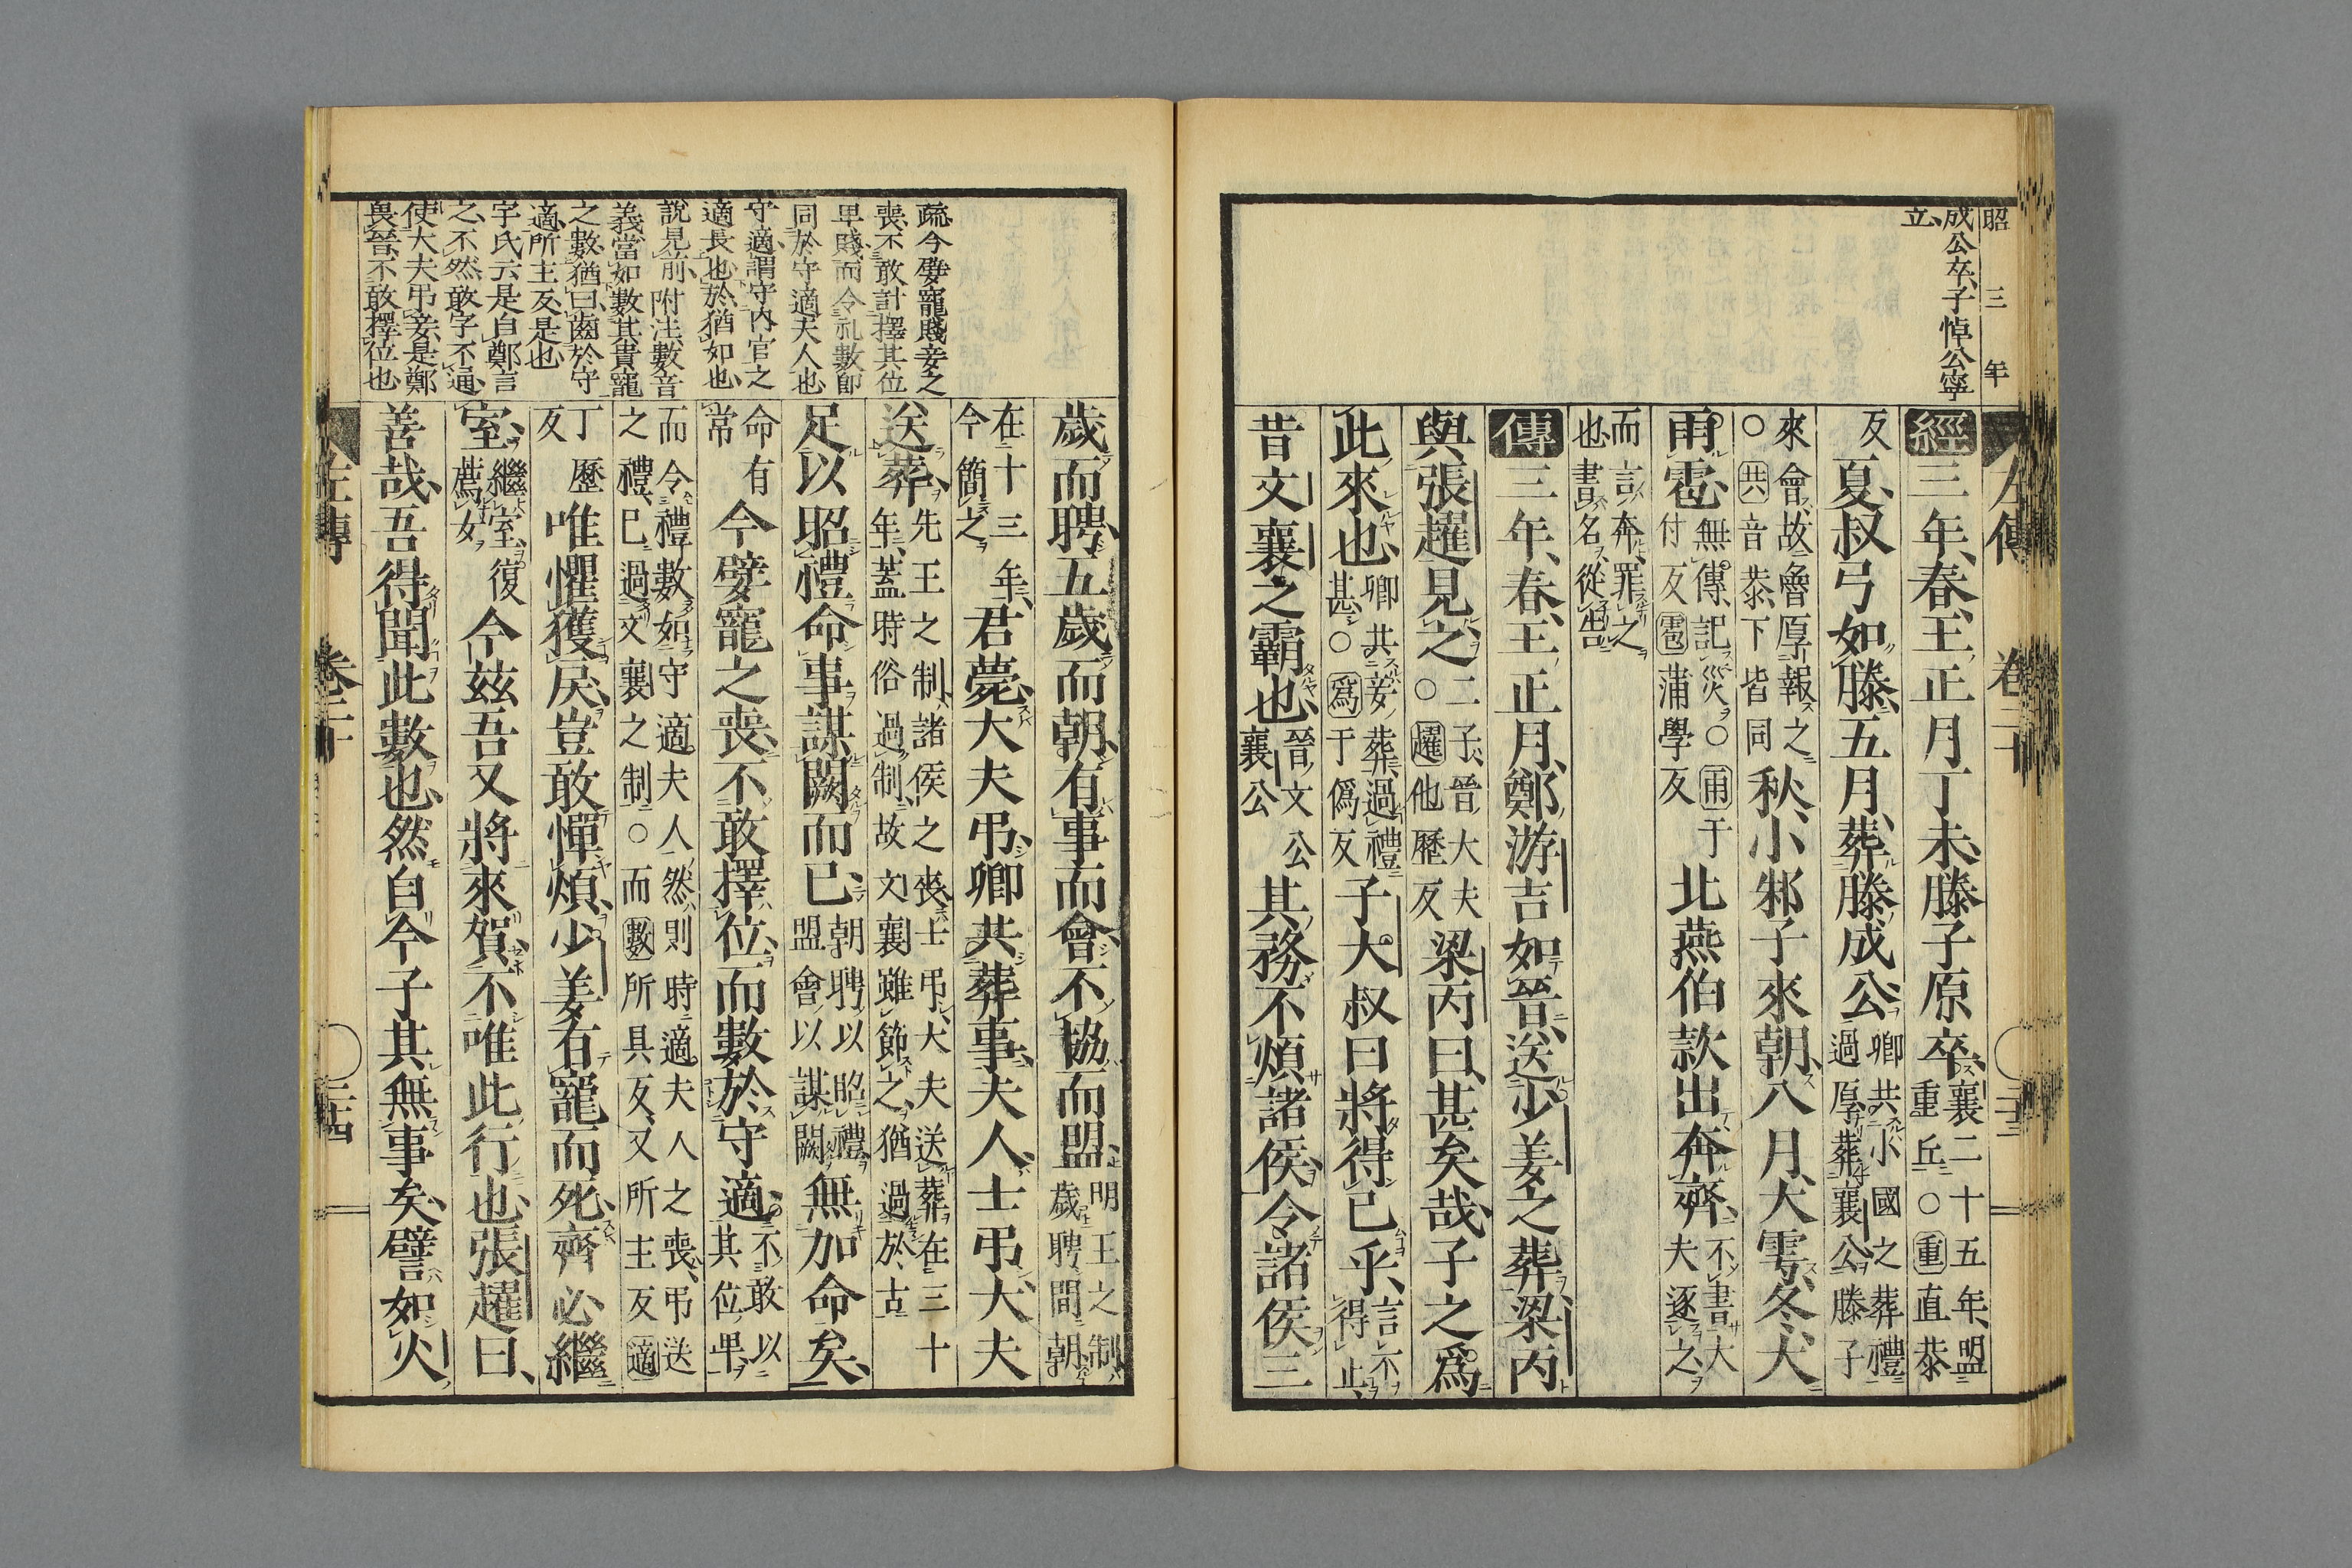 昭 三 年
成公卒、子悼公寧
立、
左傳 卷二十 二十三
經三年、春、王正月丁未、滕子原卒、襄二十五年、盟重丘○重直恭
反夏、叔弓如滕、五月、葬滕成公、卿共小國之葬禮過厚葬襄公滕子
來會、故魯厚報之○共音恭、下皆同秋、小邾子來朝、八月、大雩、冬、大
雨雹、無傳、記災○雨于付反雹蒲學反北燕伯款出奔齊、不書大夫逐之、
而言奔、罪之也、書名、從告
傳三年、春、王正月、鄭游吉如晉、送少姜之葬、梁丙
與張趯見之、二子、晉大夫○趯他歷反梁丙曰、甚矣哉、子之爲
此來也、卿共妾葬、過禮甚、○爲于僞反子大叔曰將得已乎、言不得止、
昔文襄之霸也、晉文公襄公其務不煩諸侯、令諸侯三
歲而聘、五歲而朝、有事而會、不協而盟、明王之制、歲聘間朝、
在十三年、今簡之君薨、大夫弔、卿共葬事、夫人、士弔、大夫
送葬、先王之制、諸侯之喪、士弔、大夫送葬、在三十年、蓋時俗過制、故文襄雖節之、猶過於古
足以昭禮命事謀闕而已、朝聘以昭禮、盟會以謀闕無加命矣、
命有常今嬖寵之喪、不敢擇位、而數於守適、不敢以其位卑、
而令禮數如守適夫人、然則時適夫人之喪、弔送之禮、已過文襄之制○而數所具反、又所主反適
丁歷反唯懼獲戾、豈敢憚煩、少姜有寵而死、齊必繼
室、繼室、復薦女今兹吾又將來賀、不唯此行也、張趯曰、
善哉、吾得聞此數也、然自今子其無事矣、譬如火
疏今嬖寵賤妾之
喪、不敢計擇其位
卑賤、而令礼數卽
同於守適夫人也
守適、謂守内官之
適長也、於猶如也、
說見前、附注數音
義當如數其貴寵
之數、猶曰齒於守
適、所主反是也
宇氏云是自鄭言
之、不然敢字不通、
使大夫弔妾、是鄭
畏晉、不敢擇位也
左傳 卷二十 二十四